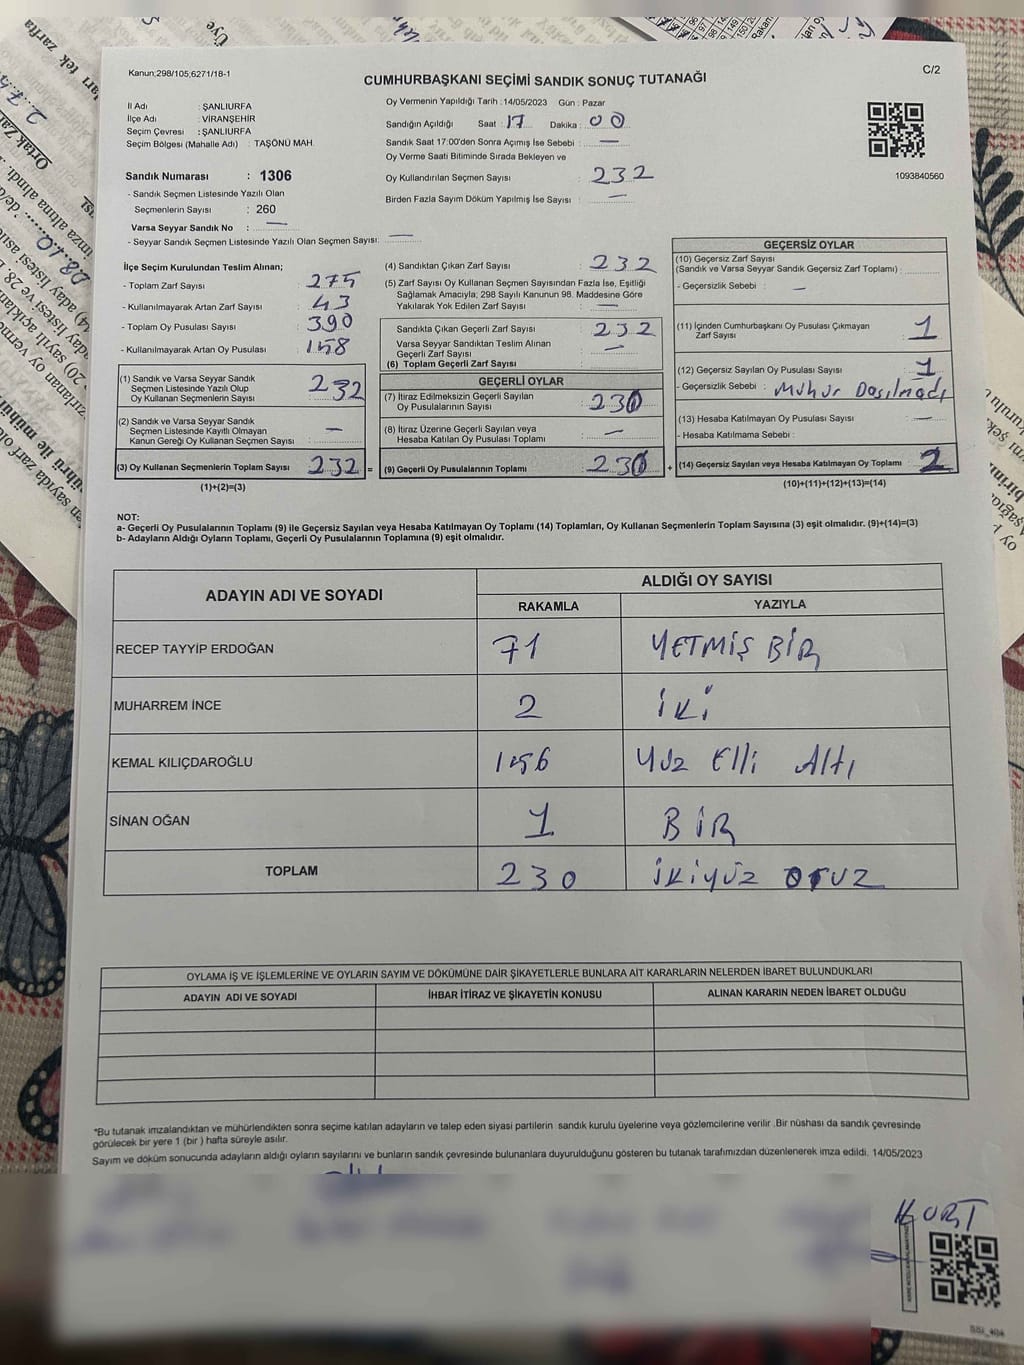 Kanun:298/105,6271/18-1
CUMHURBAŞKANI SEÇİMİ SANDIK SONUÇ TUTANAĞI
C/2
İl Adı : ŞANLIURFA
İlçe Adı : VİRANŞEHİR
Seçim Çevresi : ŞANLIURFA
Seçim Bölgesi (Mahalle Adı) : TAŞÖNÜ MAH.
Sandık Numarası : 1306
- Sandık Seçmen Listesinde Yazılı Olan
Seçmenlerin Sayısı : 260
Varsa Seyyar Sandık No : —
- Seyyar Sandık Seçmen Listesinde Yazılı Olan Seçmen Sayısı: —
Oy Vermenin Yapıldığı Tarih :14/05/2023 Gün : Pazar
Sandığın Açıldığı Saat : 17 Dakika : 00
Sandık Saat 17:00'den Sonra Açımış İse Sebebi : —
Oy Verme Saati Bitiminde Sırada Bekleyen ve
Oy Kullandırılan Seçmen Sayısı : 232
Birden Fazla Sayım Döküm Yapılmış İse Sayısı : —
1093840560
İlçe Seçim Kurulundan Teslim Alınan;
- Toplam Zarf Sayısı : 275
- Kullanılmayarak Artan Zarf Sayısı : 43
- Toplam Oy Pusulası Sayısı : 390
- Kullanılmayarak Artan Oy Pusulası : 158
(1) Sandık ve Varsa Seyyar Sandık
Seçmen Listesinde Yazılı Olup
Oy Kullananların Sayısı : 232
(2) Sandık ve Varsa Seyyar Sandık
Seçmen Listesinde Kayıtlı Olmayan
Kanun Gereği Oy Kullanan Seçmen Sayısı : —
(3) Oy Kullanan Seçmenlerin Toplam Sayısı : 232 =
(1)+(2)=(3)
(4) Sandıktan Çıkan Zarf Sayısı : 232
(5) Zarf Sayısı Oy Kullanan Seçmen Sayısından Fazla İse, Eşitliği
Sağlamak Amacıyla; 298 Sayılı Kanunun 98. Maddesine Göre
Yakılarak Yok Edilen Zarf Sayısı : —
Sandıkta Çıkan Geçerli Zarf Sayısı : 232
Varsa Seyyar Sandıktan Teslim Alınan
Geçerli Zarf Sayısı : —
(6) Toplam Geçerli Zarf Sayısı :
GEÇERLİ OYLAR
(7) İtiraz Edilmeksizin Geçerli Sayılan
Oy Pusulalarının Sayısı : 230
(8) İtiraz Üzerine Geçerli Sayılan veya
Hesaba Katılan Oy Pusulası Toplamı : —
(9) Geçerli Oy Pusulalarının Toplamı : 230 +
GEÇERSİZ OYLAR
(10) Geçersiz Zarf Sayısı
(Sandık ve Varsa Seyyar Sandık Geçersiz Zarf Toplamı) :
- Geçersizlik Sebebi : —
(11) İçinden Cumhurbaşkanı Oy Pusulası Çıkmayan
Zarf Sayısı : 1
(12) Geçersiz Sayılan Oy Pusulası Sayısı : 1
- Geçersizlik Sebebi : Mühür Basılmadı
(13) Hesaba Katılmayan Oy Pusulası Sayısı : —
- Hesaba Katılmama Sebebi :
(14) Geçersiz Sayılan veya Hesaba Katılmayan Oy Toplamı : 2
(10)+(11)+(12)+(13)=(14)
NOT:
a- Geçerli Oy Pusulalarının Toplamı (9) ile Geçersiz Sayılan veya Hesaba Katılmayan Oy Toplamı (14) Toplamları, Oy Kullanan Seçmenlerin Toplam Sayısına (3) eşit olmalıdır. (9)+(14)=(3)
b- Adayların Aldığı Oyların Toplamı, Geçerli Oy Pusulalarının Toplamına (9) eşit olmalıdır.
ADAYIN ADI VE SOYADI
ALDIĞI OY SAYISI
RAKAMLA YAZIYLA
RECEP TAYYİP ERDOĞAN 71 YETMİŞ BİR
MUHARREM İNCE 2 İKİ
KEMAL KILIÇDAROĞLU 156 Yüz Elli Altı
SİNAN OĞAN 1 BİR
TOPLAM 230 İKİYÜZ OTUZ
OYLAMA İŞ VE İŞLEMLERİNE VE OYLARIN SAYIM VE DÖKÜMÜNE DAİR ŞİKAYETLERLE BUNLARA AİT KARARLARIN NELERDEN İBARET BULUNDUKLARI
ADAYIN ADI VE SOYADI İHBAR İTİRAZ VE ŞİKAYETİN KONUSU ALINAN KARARIN NEDEN İBARET OLDUĞU
*Bu tutanak imzalandıktan ve mühürlendikten sonra seçime katılan adayların ve talep eden siyasi partilerin sandık kurulu üyelerine veya gözlemcilerine verilir .Bir nüshası da sandık çevresinde
görülecek bir yere 1 (bir ) hafta süreyle asılır.
Sayım ve döküm sonucunda adayların aldığı oyların sayılarını ve bunların sandık çevresinde bulunanlara duyurulduğunu gösteren bu tutanak tarafımızdan düzenlenerek imza edildi. 14/05/2023
KURT